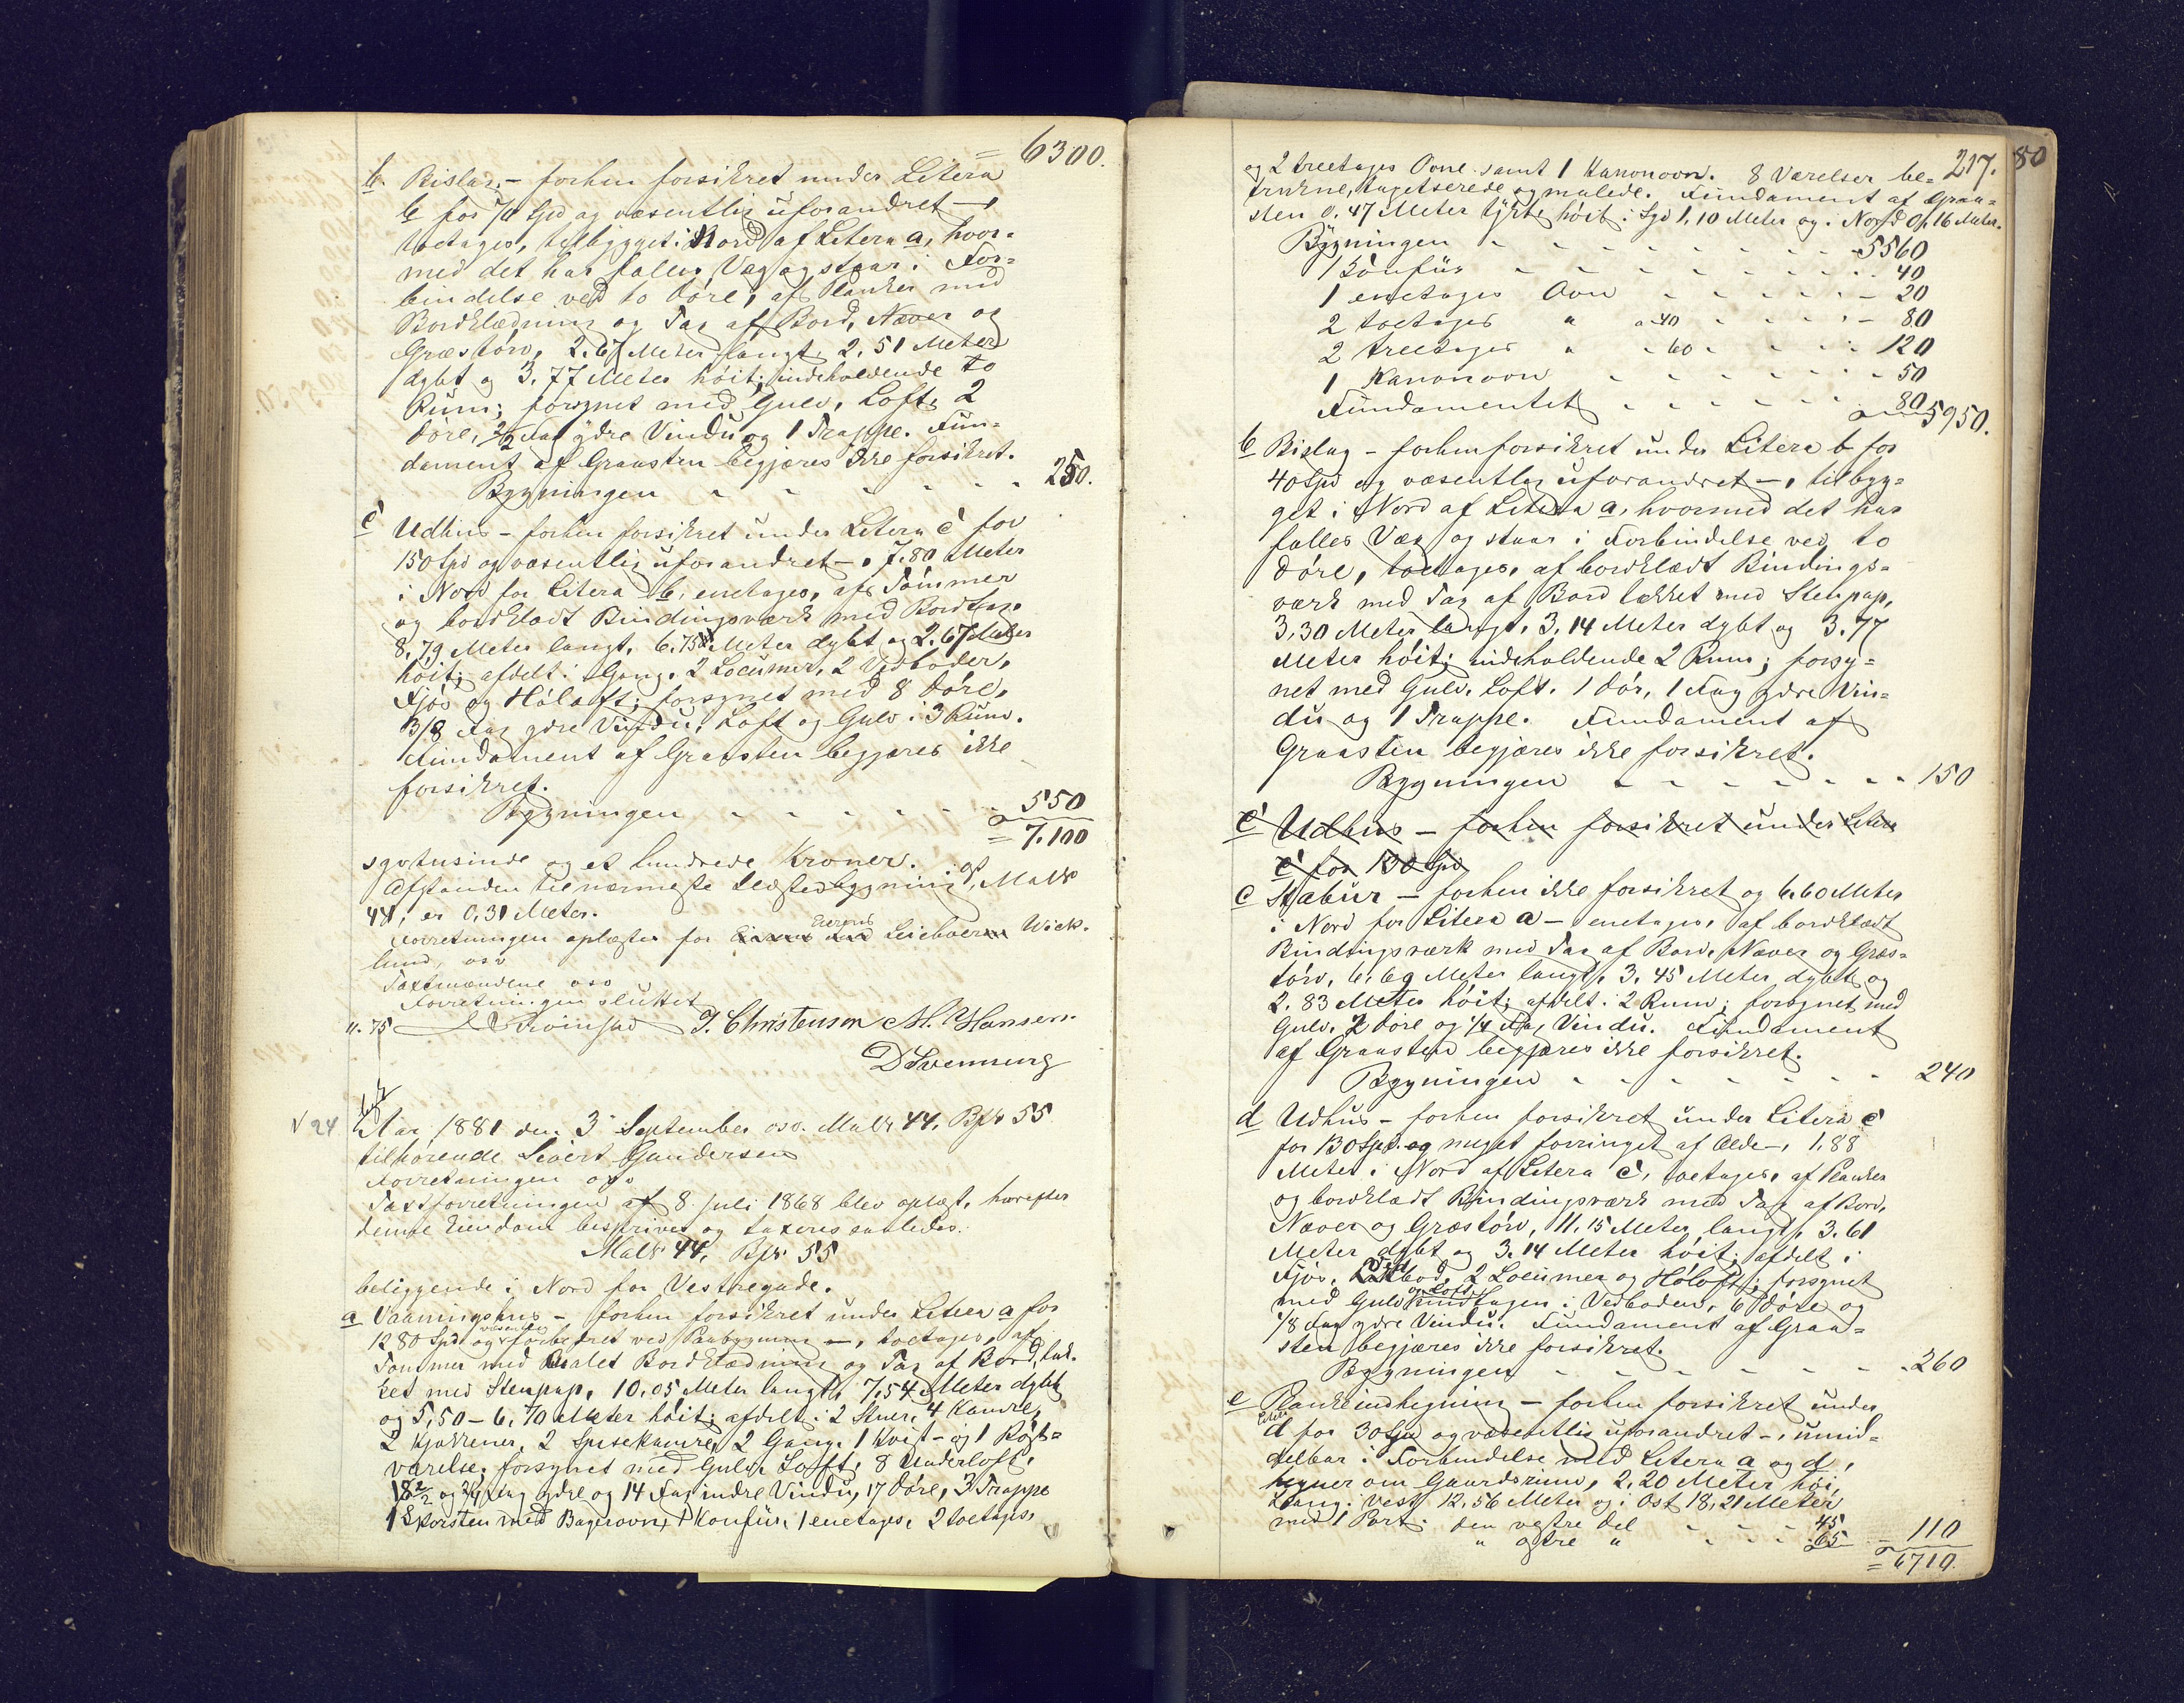 = 6300.
b. Bislag – forhen forsikret under Litera
b for 70 Spd og væsentlig uforandret –,
toetages, tilbygget i Nord af Litera a, hvor-
med det har fælles Væg og staar i For-
bindelse ved to Döre, af Planker med
Bordklædning og Tag af Bord, Næver og
Græstörv, 2.67 Meter langt, 2.51 Meter
dybt og 3.77 Meter höit; indeholdende to
Rum; forsynet med Gulv, Loft, 2
Döre, 2/2 Fag ydre Vindu og 1 Trappe. Fun-
dament af Graasten begjæres ikke forsikret.
Bygningen - - - - - - 250.
c Udhus – forhen forsikret under Litera c for
150 Spd og væsentlig uforandret –, 7.80 Meter
i Nord for Litera b, enetages, af Tömmer
og bordklædt Bindingsværk med Bordtag,
8.79 Meter langt, 6.75 Meter dybt og 2.67 Meter
höit; afdelt i Gang, 2 Locumer, 2 Vedboder,
Fjös og Höloft; forsynet med 8 Döre,
3/8 Fag ydre Vindu, Loft og Gulv i 3 Rum.
Fundament af Graasten begjæres ikke
forsikret.
Bygningen - - - - - 550
= 7.100
syvtusinde og et hundrede Kroner.
Afstanden til nærmeste Bygning öst, MatN
44, er 0,31 Meter.
Forretningen oplæstes for Eierens Leieboer Wick-
lund, osv
Taxtmændene osv
Forretningen sluttet
11.75 J. Christensen M. Hansen.
D Svenning
N 24 Aar 1881 den 3 September osv. MatN 44, BpN 55
tilhörende Sivert Gundersen
Forretningen osv
Taxtforretningen af 8 Juli 1868 blev oplæst, hvorefter
denne Eiendom beskrives og taxeres saaledes:
MatN 44, BpN 55
beliggende i Nord for Vestregade.
a Vaaningshus – forhen forsikret under Litera a for
1280 Spd og væsentlig forbedret ved Paabygning –, toetages, af
Tömmer med malet Bordklædning og Tag af Bord, tæk-
ket med Stenpap, 10,05 Meter langt, 7,54 Meter dybt
og 5,50 – 6,70 Meter höit; afdelt i 2 Stuer, 4 Kamre,
2 Kjökkener, 2 Spisekamre, 2 Gange, 1 Kvist- og 1 Rögt-
værelse; forsynet med Gulv, Loft, 8 Underloft,
18 2/2 og 2/4 Fag ydre og 14 Fag indre Vindu, 17 Döre, 3 Trappe
1 Skorsten med Bagerovn, 1 Konfür, 1 enetages, 2 toetages,
217. 80
og 2 treetages Ovne samt 1 Kanonovn. 8 Værelser be-
trukne, tapetserede og malede. Fundament af Graa-
sten 0,47 Meter tykt, höit i Syd 1,10 Meter og i Nord 0,16 Meter.
Bygningen - - - - - - - 5560
1 Konfür - - - - - - - 40
1 enetages Ovn - - - - - - 20
2 toetages " a 40 - - - - - 80
2 treetages " - 60 - - - - - 120
1 Kanonovn - - - - - - 50
Fundamentet - - - - - - 80
5950.
b Bislag – forhen forsikret under Litera b for
40 Spd og væsentlig uforandret –, tilbyg-
get i Nord af Litera a, hvormed det har
fælles Væg og staar i Forbindelse ved to
Döre, toetages, af bordklædt Bindings-
værk med Tag af Bord tækket med Stenpap,
3,30 Meter langt, 3,14 Meter dybt og 3.77
Meter höit; indeholdende 2 Rum; forsy-
net med Gulv, Loft, 1 Dör, 1 Fag ydre Vin-
du og 1 Trappe. Fundament af
Graasten begjæres ikke forsikret.
Bygningen - - - - - - 150
c Udhus – forhen forsikret under Litera
c for 130 Spd
c Stabur – forhen ikke forsikret og 6,60 Meter
i Nord for Litera a – enetages, af bordklædt
Bindingsværk med Tag af Bord, Næver og Græs-
törv, 6,69 Meter langt, 3,45 Meter dybt og
2.83 Meter höit; afdelt i 2 Rum; forsynet med
Gulv, 2 Döre og 1/4 Fag Vindu. Fundament
af Graasten begjæres ikke forsikret.
Bygningen - - - - - - - 240
d Udhus – forhen forsikret under Litera c
for 130 Spd og meget forringet af Ælde –, 1,88
Meter i Nord af Litera c, toetages, af Planker
og bordklædt Bindingsværk med Tag af Bord,
Næver og Græstörv, 11,15 Meter langt, 3.61
Meter dybt og 3.14 Meter höit; afdelt i
Fjös, Vedbod, 2 Locumer og Höloft; forsynet
med Gulv og Loft undtagen i Vedboden, 6 Döre og
1/8 Fag ydre Vindu. Fundament af Graa-
sten begjæres ikke forsikret.
Bygningen - - - - - - - 260
e Plankeindhegning – forhen forsikret under
Litera d for 30 Spd og væsentlig uforandret –, umid-
delbar i Forbindelse med Litera a og d,
hegner om Gaardsrum, 2,20 Meter höi,
lang i Vest 12,56 Meter og i Öst 18,21 Meter
med 1 Port: den vestre Del - - - 45
" östre " - - - 65 - 110
= 6710.